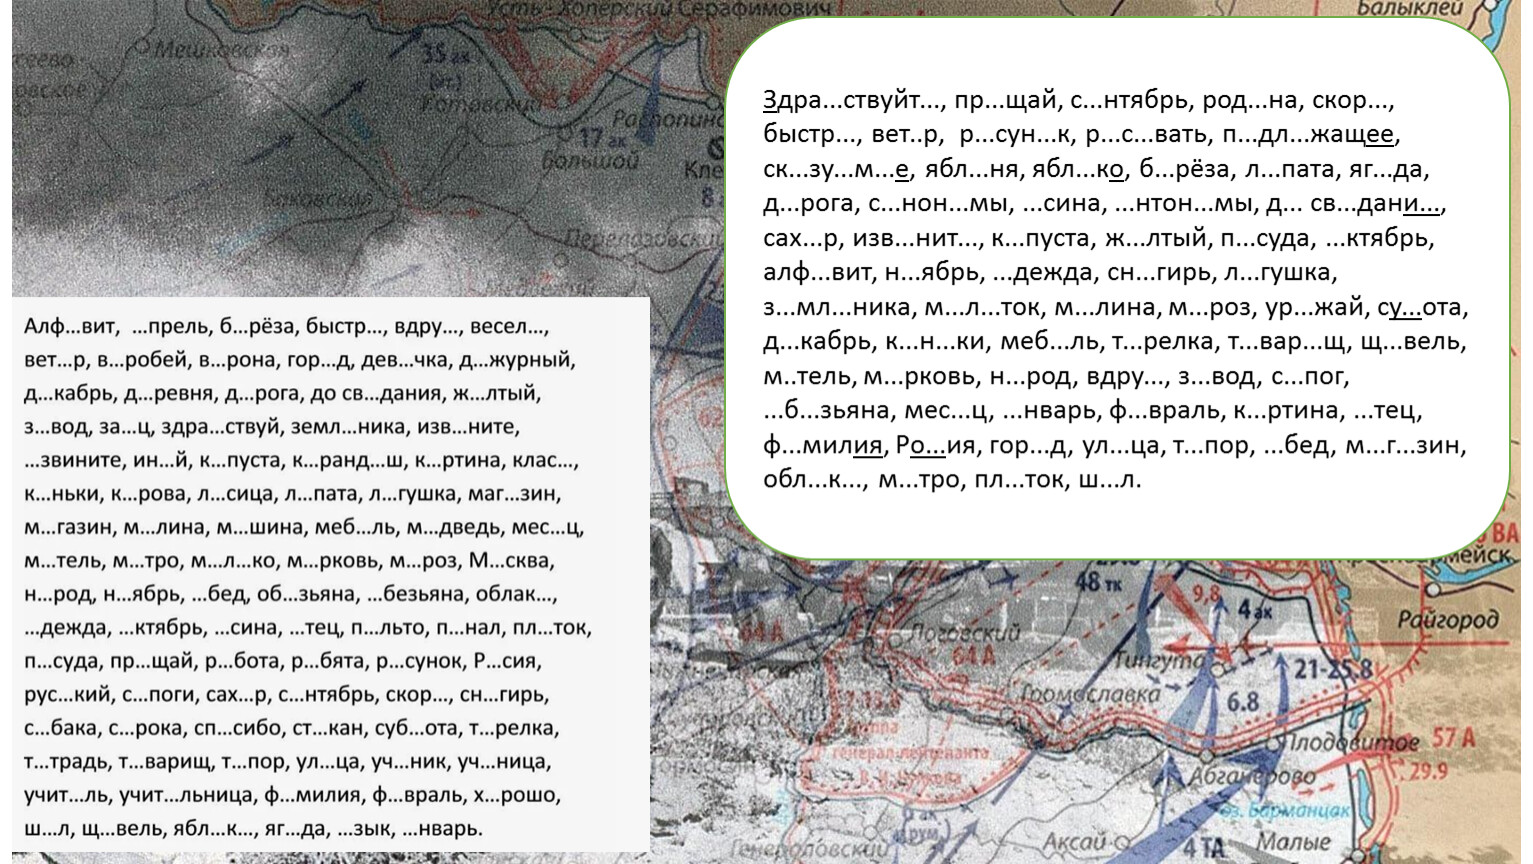 Усть - Хоперский Серафимович
Балыклей
Мешковская
35 ак
(от.)
Котовский
17 ак
Большой
Кле
Боковская
Перелазовский
Здра...ствуйт..., пр...щай, с...нтябрь, род...на, скор...,
быстр..., вет..р, р...сун...к, р...с...вать, п...дл...жащее,
ск...зу...м...е, ябл...ня, ябл...ко, б...рёза, л...пата, яг...да,
д...рога, с...нон...мы, ...сина, ...нтон...мы, д... св...дани...,
сах...р, изв...нит..., к...пуста, ж...лтый, п...суда, ...ктябрь,
алф...вит, н...ябрь, ...дежда, сн...гирь, л...гушка,
з...мл...ника, м...л...ток, м...лина, м...роз, ур...жай, су...ота,
д...кабрь, к...н...ки, меб...ль, т...релка, т...вар...щ, щ...вель,
м..тель, м...рковь, н...род, вдру..., з...вод, с...пог,
...б...зьяна, мес...ц, ...нварь, ф...враль, к...ртина, ...тец,
ф...милия, Ро...ия, гор...д, ул...ца, т...пор, ...бед, м...г...зин,
обл...к..., м...тро, пл...ток, ш...л.
Алф...вит, ...прель, б...рёза, быстр..., вдру..., весел...,
вет...р, в...робей, в...рона, гор...д, дев...чка, д...журный,
д...кабрь, д...ревня, д...рога, до св...дания, ж...лтый,
з...вод, за...ц, здра...ствуй, земл...ника, изв...ните,
...звините, ин...й, к...пуста, к...ранд...ш, к...ртина, клас...,
к...ньки, к...рова, л...сица, л...пата, л...гушка, маг...зин,
м...газин, м...лина, м...шина, меб...ль, м...дведь, мес...ц,
м...тель, м...тро, м...л...ко, м...рковь, м...роз, М...сква,
н...род, н...ябрь, ...бед, об...зьяна, ...безьяна, облак...,
...дежда, ...ктябрь, ...сина, ...тец, п...льто, п...нал, пл...ток,
п...суда, пр...щай, р...бота, р...бята, р...сунок, Р...сия,
рус...кий, с...поги, сах...р, с...нтябрь, скор..., сн...гирь,
с...бака, с...рока, сп...сибо, ст...кан, суб...ота, т...релка,
т...традь, т...варищ, т...пор, ул...ца, уч...ник, уч...ница,
учит...ль, учит...льница, ф...милия, ф...враль, х...рошо,
ш...л, щ...вель, ябл...к..., яг...да, ...зык, ...нварь.
48 тк
9,8
4 ак
Райгород
Логовский
64 А
64 А
Тингута
21-25.8
Громославка
6.8
генерал-лейтенанта
В. И. Чуйкова
Плодовитое
57 А
Абганерово
29.9
оз. Барманцак
Аксай
4 ТА
Малые
Генераловский